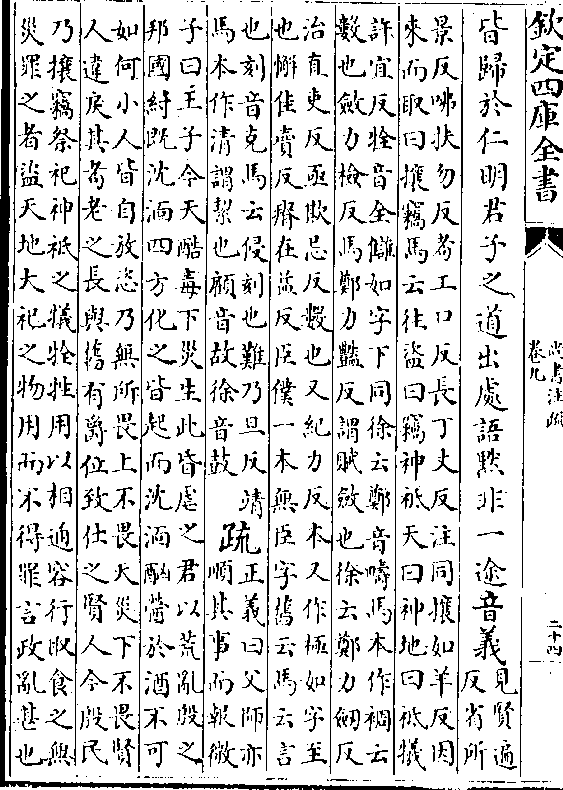 欽定四庫全書
尚書注疏
卷九
二十四
皆歸於仁明君子之道出處語默非一途音義見賢遍反省所
景反咈扶勿反耇工口反長丁丈反注同攘如羊反因
來而取曰攘竊馬云往盜曰竊神祗天曰神地曰祗犧
許宜反牷音全讎如字下同徐云鄭音疇馬本作稠云
數也斂力檢反馬鄭力豔反謂賦斂也徐云鄭力劒反
治直吏反亟欺忌反數也又紀力反本又作極如字至
也懈佳賣反瘠在益反臣僕一本無臣字舊云馬云言
也刻音克馬云侵刻也難乃旦反靖
馬本作清謂絜也顧音故徐音鼓疏正義曰父師亦順其事而報微
子曰王子今天酷毒下災生此昏虐之君以荒亂殷之
邦國紂既沈湎四方化之皆起而沈湎酗醟於酒不可
如何小人皆自放恣乃無所畏上不畏天災下不畏賢
人違戾其耇老之長與舊有爵位致仕之賢人今殷民
乃攘竊祭祀神祗之犧牷牲用以相通容行取食之無
災罪之者盜天地大祀之物用而不得罪言政亂甚也